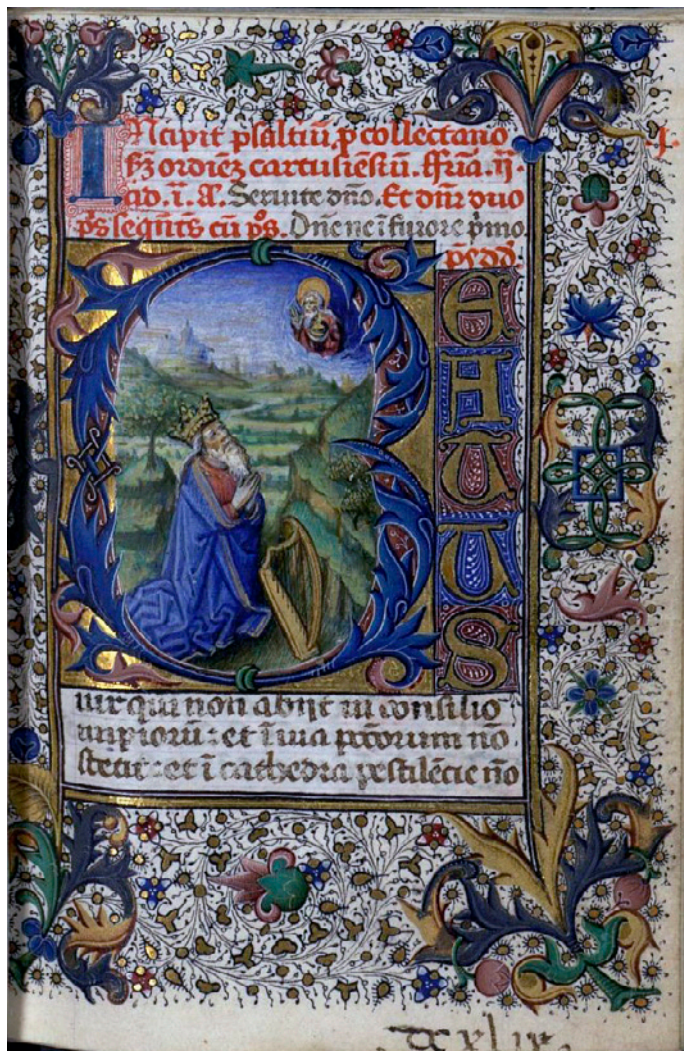 Incipit psaltiū p collectario
sz ordiēz cartusiēsiū. Feria. ij.
ad. ī. A. Seruite dno. Et dnr duo
ps seqntes cū ps. Dne ne ī furore pmo.
ps dd.
BEATUS
uir qui non abijt in consilio
impiorū: et ī uia pctorum nō
stetit: et ī cathedra pestilēcie nō